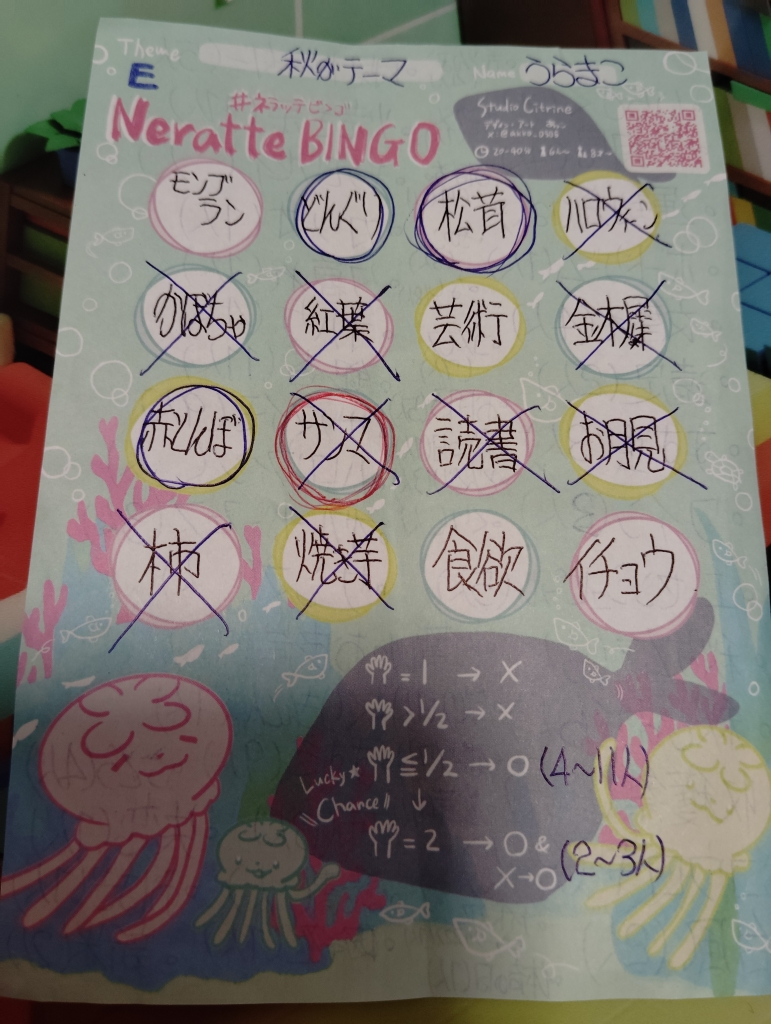 Theme 秋がテーマ Name うらまこ
E
#ネラッテビンゴ
Neratte BINGO
Studio Citrine
デザイン・アート
20-40分
モンブラン どんぐり 松茸 ハロウィン
かぼちゃ 紅葉 芸術 金木犀
赤とんぼ サンマ 読書 お月見
柿 焼き芋 食欲 イチョウ
=1 → X
>1/2 → X
≦1/2 → O (4~11人)
Lucky★
Chance!! ↓
=2 → O &
X→O (2~3人)